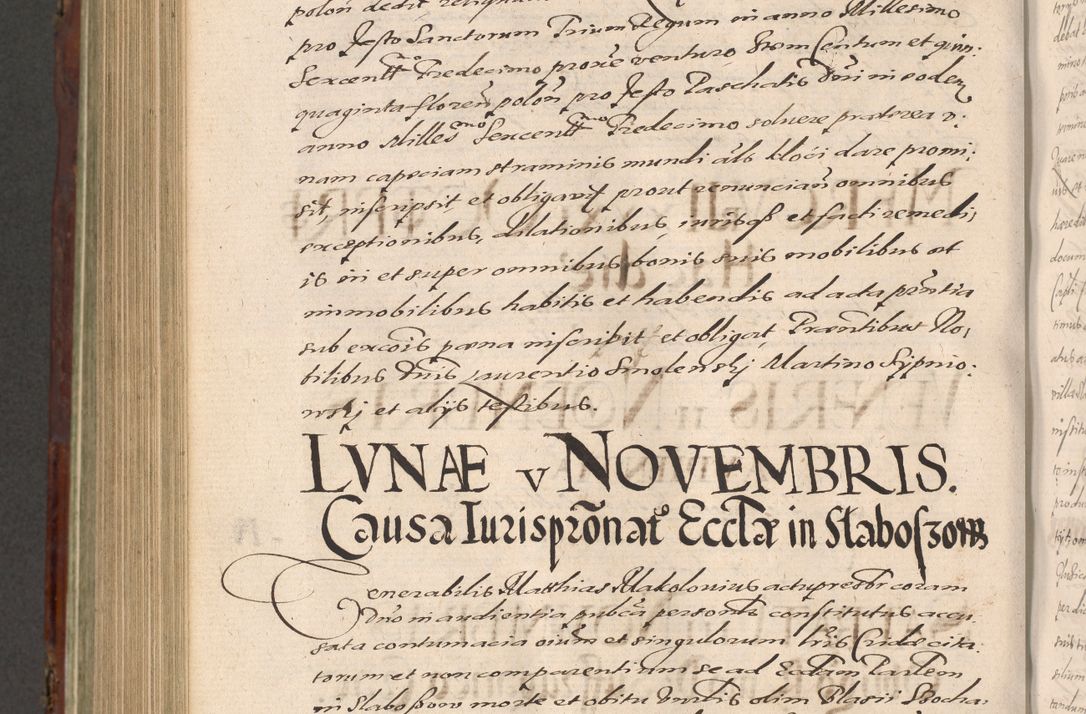 polon dedit resigna
pro festo Sanctorum Trium Regum in anno Millesimo
Sexcentmo Tredecimo proxe venturo Item Centum et quin:
quaginta floren polon pro festo Paschalis Dni in eodem
anno Millesmo Sexcentmo Tredecimo solvere praeterea v:
nam capeciam straminis mundi als kloci dare promi:
sit, inscripsit, et obligavit prout renuncian omnibus
exceptionibus, dilationibus, iurisq et facti remedi,
is in et super omnibus bonis suis mobilibus et
immobilibus habitis et habendis ad acta pñtia
sub excois paena inscribit et obligat Praesentibus No,
bilibus Dnis Laurentio Smolenskj Martino Sypnio:
wskj et alijs testibus.
LVNAE v NOVEMBRIS.
Causa Iurispronatº Ecclae in Slaboszow
Venerabilis Matthias Makolonius actu presbr coram
Dno in audientia publca personlr constitutus accu
sata contumacia oium et singulorum lris Cridae cita
torum et non comparentium se ad Ecclam Parlem
in Slaboszow morte et obitu Vnblis olim Blasii Bocha: